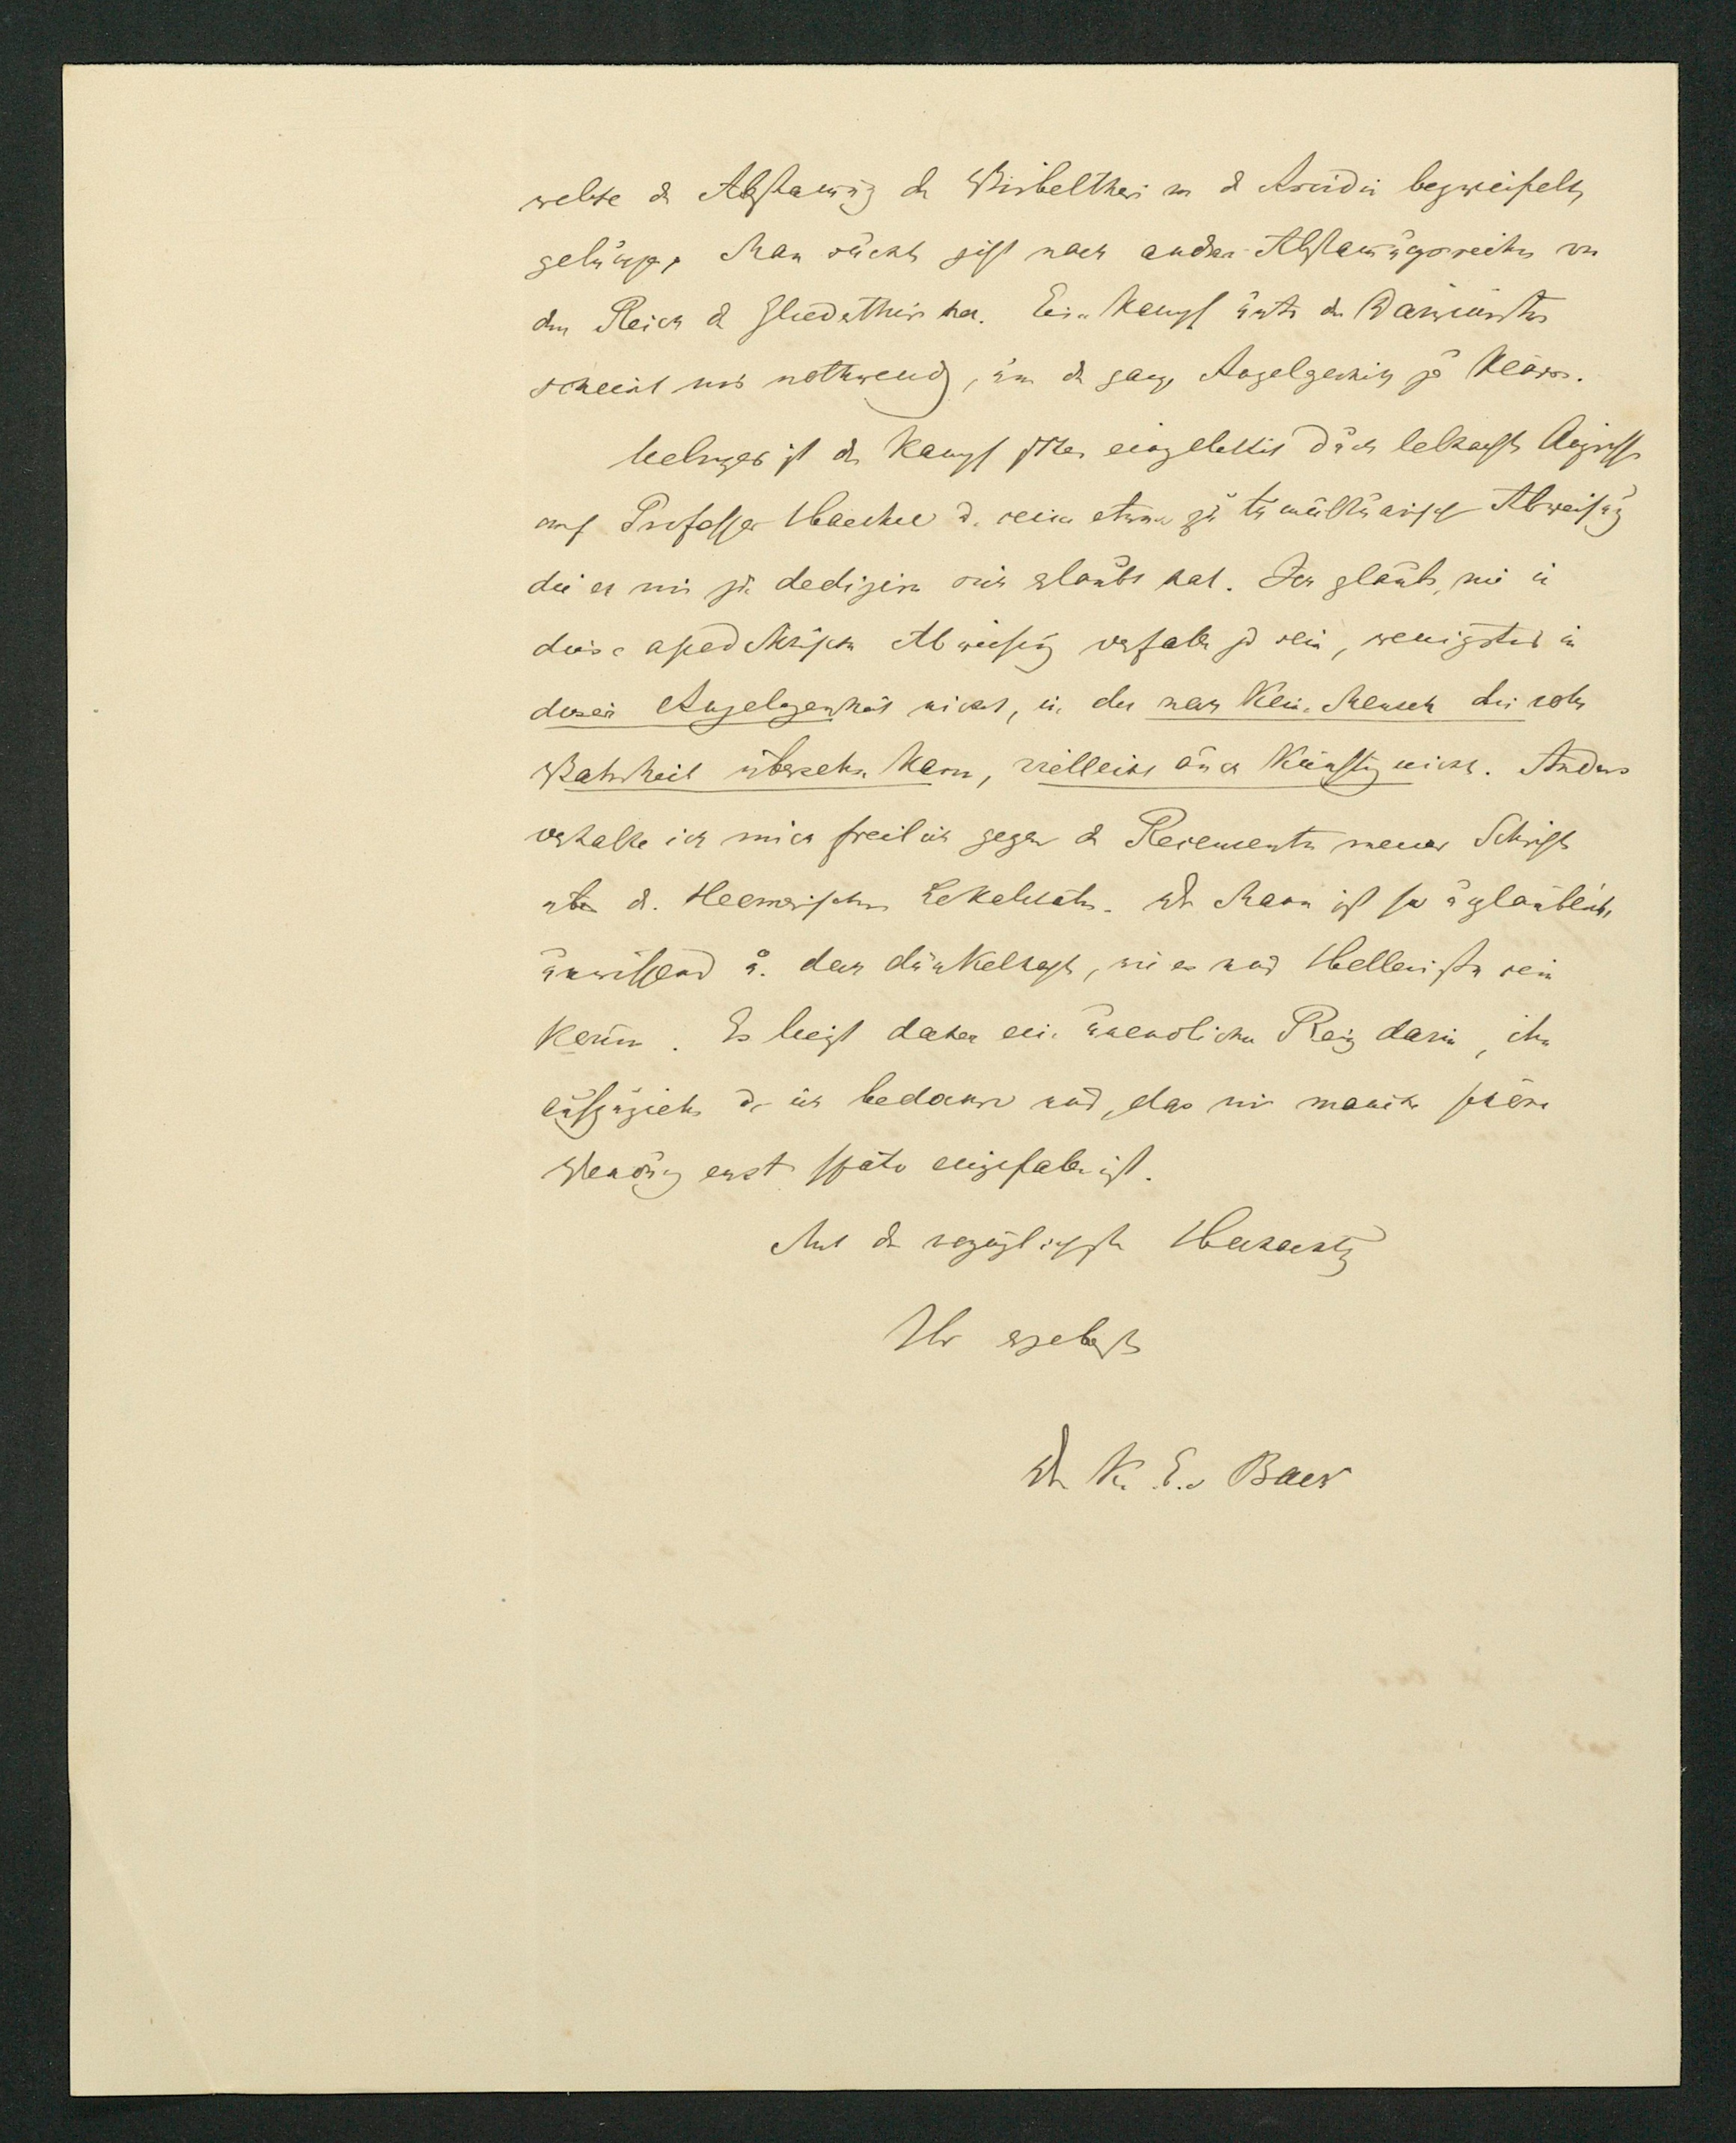 welche d Abstamūg der Wirbelthier von d Ascidien bezweifelt,
Man sucht jetzt nach anderen Abstamūgsreihen von
dem Reich d Gliederthiere her. Ein Kampf unter den Darwinisten
scheint mir nothwendig, um die ganze Angelegenheit zu klären.
Uebrigens ist der Kampf schon eingeleitet durch lebhafte Angriffe
auf Professor Haeckel u. seine etwas zu tumultuarische Abweisung
die er mir zu dediziren sich erlaubt hat. Ich glaube, nie in
diese apodiktischen Abweisung verfallen zu sein, wenigstens in
dieser Angelegenheit nicht, in der noch kein Mensch die volle
Wahrheit übersehen kann, vielleicht auch künftig nicht. Anders
verhalte ich mich freilich gegen d Recensenten meiner Schrift
über d. Homerischen Lokalitäten. Der Mann ist so unglaublich
unwissend u. dabei dünkelhaft, wie es nur Hellenisten sein
können. Es liegt daher ein unendlicher Reiz darin, ihn
aufzuziehen u. ich bedaure nur, das mir manche schöne
Wendung erst später eingefallen ist.
Mit der vorzüglichsten Hochachtung
Ihr ergebenster
Dr K. E. v Baer